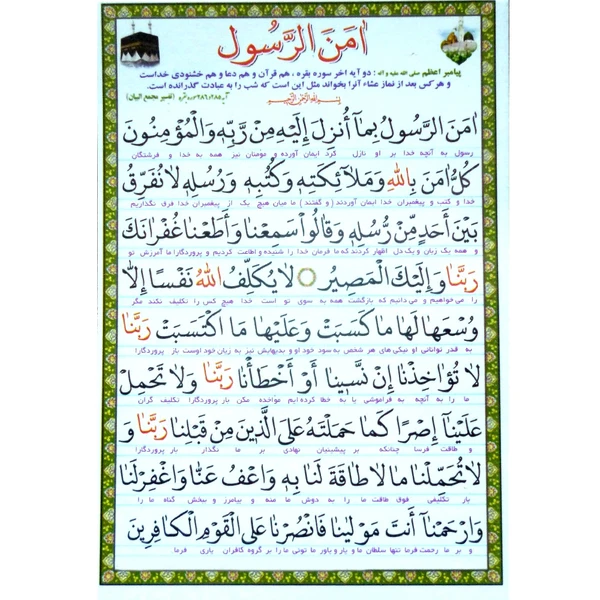 اٰمَنَ الرَّسُول
پیامبر اعظم صلی الله علیه و آله : دو آیه آخر سوره بقره ، هم قرآن و هم دعا و هم خشنودی خداست
و هر کس بعد از نماز عشاء آنرا بخواند مثل این است که شب را به عبادت گذرانده است. (تفسیر مجمع البیان)
بِسْمِ اللهِ الرَّحْمٰنِ الرَّحِيمِ
اٰمَنَ الرَّسُولُ بِمآ أُنْزِلَ إِلَيْهِ مِنْ رَبِّهٖ وَالْمُؤْمِنُونَ
رسول به آنچه خدا بر او نازل کرد ایمان آورده و مومنان نیز همه به خدا و فرشتگان
كُلٌّ اٰمَنَ بِاللهِ وَمَلآئِكَتِهٖ وَكُتُبِهٖ وَرُسُلِهٖ لاٰ نُفَرِّقُ
خدا و کتب و پیغمبران خدا ایمان آوردند (و گفتند) ما میان هیچ یک از پیغمبران خدا فرق نگذاریم
بَيْنَ أَحَدٍ مِّنْ رُسُلِهٖ وَقٰالُواْ سَمِعْنٰا وَأَطَعْنٰا غُفْرٰانَكَ
و همه یک زبان و یک دل اظهار کردند که ما فرمان خدا را شنیده و اطاعت کردیم و پروردگارا ما آمرزش تو
رَبَّنٰا وَإِلَيْكَ الْمَصِيرُ لاٰ يُكَلِّفُ اللهُ نَفْسًا إِلاّٰ
را می خواهیم و می دانیم که بازگشت همه به سوی تو است خدا هیچ کس را تکلیف نکند مگر
وُسْعَهٰا لَهٰا مٰا كَسَبَتْ وَعَلَيْهٰا مَا اكْتَسَبَتْ رَبَّنٰا
به قدر توانائی او نیکی های هر شخص به سود خود او و بدیهایش نیز به زیان خود اوست بار پروردگارا
لاٰ تُؤٰاخِذْنٰا إِنْ نَّسٖينٰا أَوْ أَخْطَأْنٰا رَبَّنٰا وَلاٰ تَحْمِلْ
ما را به آنچه به فراموشی یا به خطا کرده ایم مواخذه مکن بار پروردگارا تکلیف گران
عَلَيْنٰآ إِصْرًا كَمٰا حَمَلْتَهُ عَلَى الَّذِينَ مِنْ قَبْلِنٰا رَبَّنٰا وَ
و طاقت فرسا چنانکه بر پیشینیان نهادی بر ما نگذار بار پروردگارا
لاٰ تُحَمِّلْنٰا مٰا لاٰ طٰاقَةَ لَنٰا بِهٖ وَاعْفُ عَنّٰا وَاغْفِرْلَنٰا
بار تکلیفی فوق طاقت ما را به دوش ما منه و بیامرز و ببخش گناه ما را
وَارْحَمْنٰآ أَنْتَ مَوْلٰينٰا فَانْصُرْنٰا عَلَى الْقَوْمِ الْكٰافِرِينَ
و بر ما رحمت فرما تنها سلطان ما و یار و یاور ما توئی ما را بر گروه کافران یاری فرما